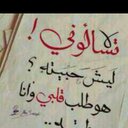 لا تسألوني !
ليش حبيته ؟
هو طلب قلبي وأنا